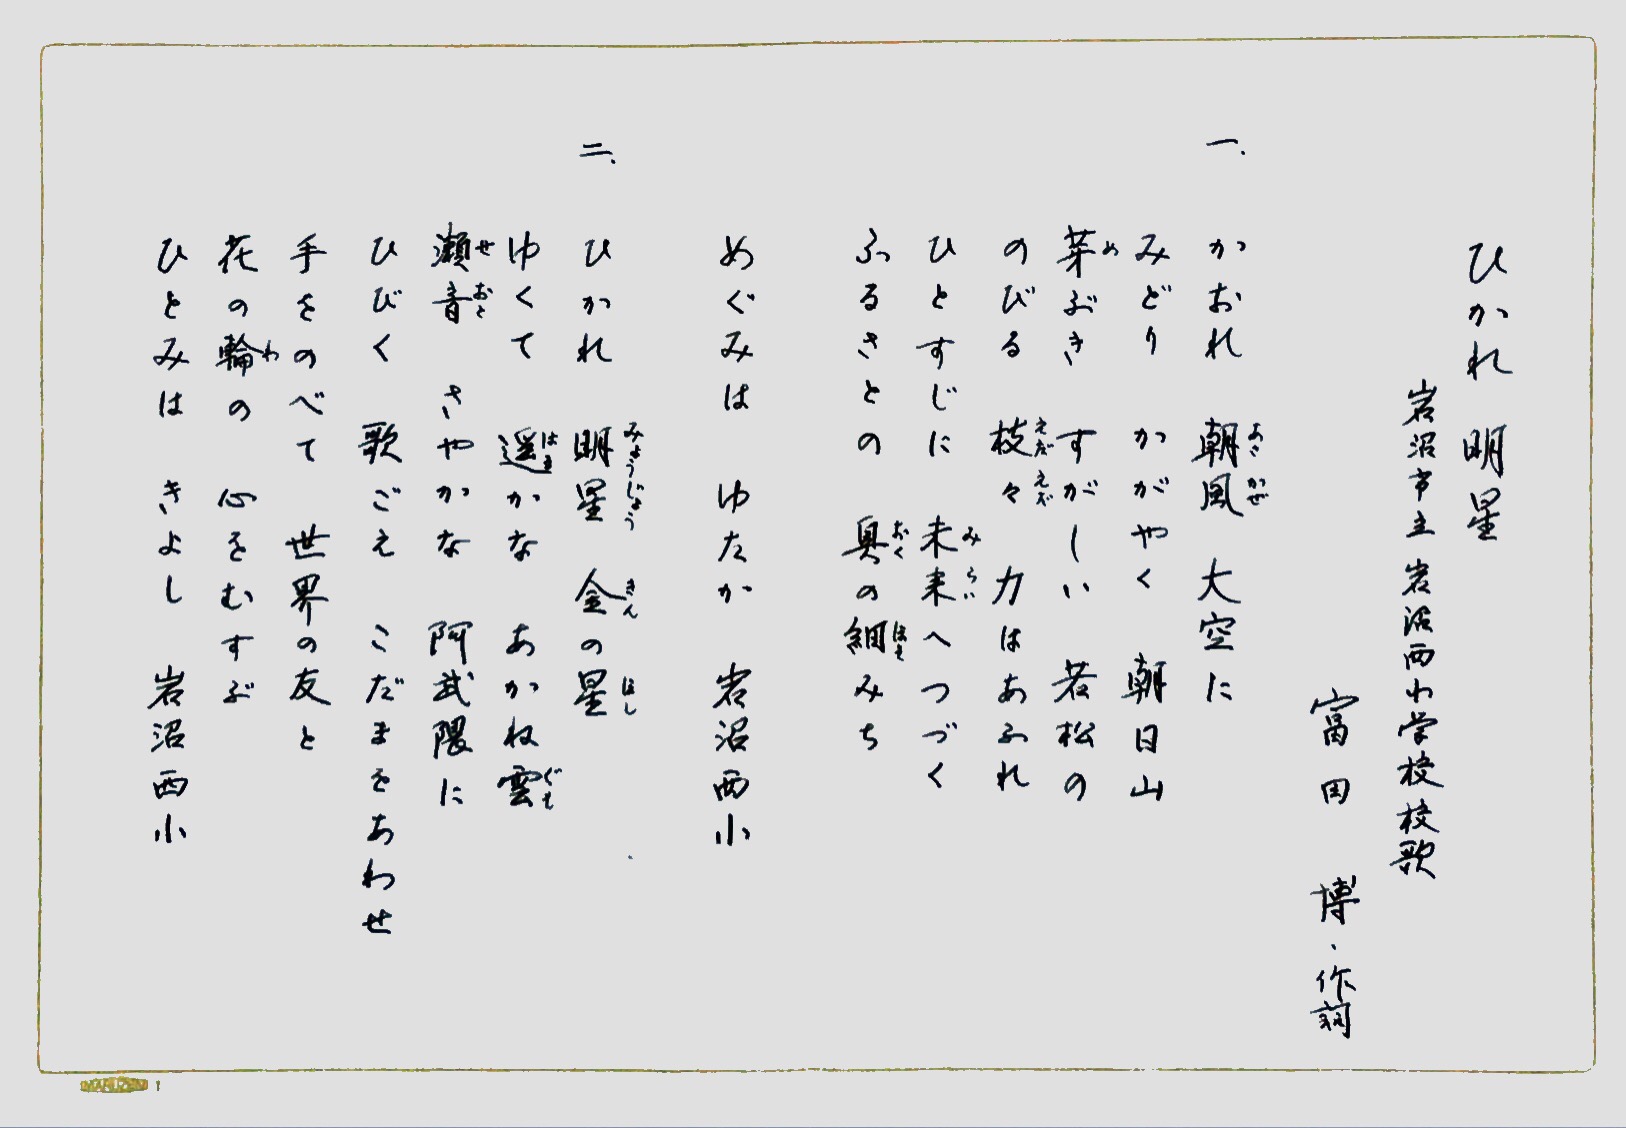 ひかれ 明星
岩沼市立 岩沼西小学校校歌
富田 博・作詞
一.
かおれ 朝風 大空に
あさかぜ
みどり かがやく 朝日山
芽ぶき すがしい 若松の
め
のびる 枝々 力はあふれ
えだえだ
ひとすじに 未来へつづく
みらい
ふるさとの 奥の細みち
おく ほそ
めぐみは ゆたか 岩沼西小
二.
ひかれ 明星 金の星
みょうじょう きん ほし
ゆくて 遥かな あかね雲
はる ぐも
瀬音 さやかな 阿武隈に
せおと
ひびく 歌ごえ こだまをあわせ
手をのべて 世界の友と
花の輪の 心をむすぶ
わ
ひとみは きよし 岩沼西小
MARUZEN 1